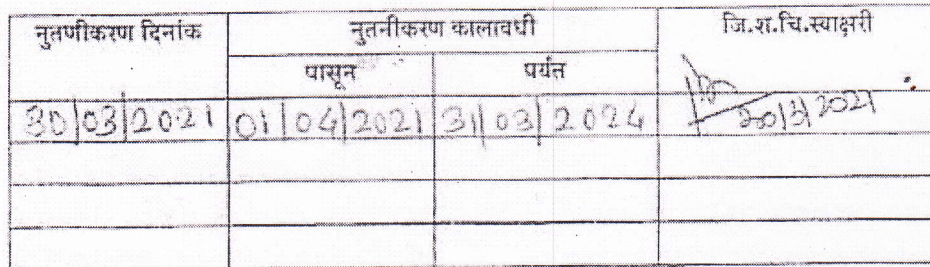 नुतणीकरण दिनांक नुतनीकरण कालावधी जि.श.चि.स्वाक्षरी
पासून पर्यंत
30|03|2021 01|04|2021 31|03|2024 30|3|2021